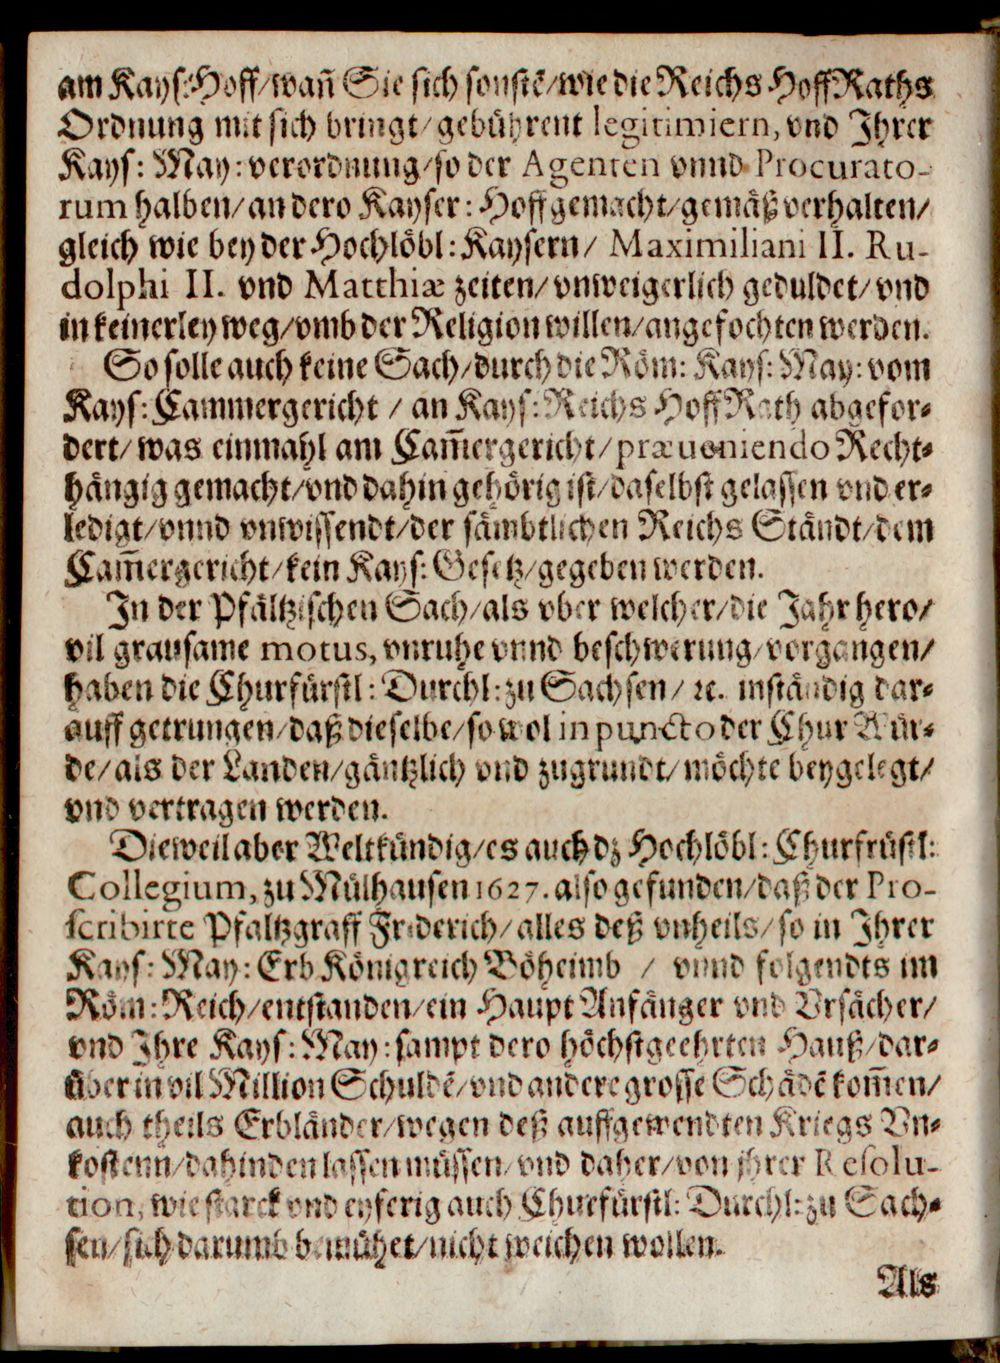 am Kays: Hoff/wañ Sie sich sonstẽ/wie die Reichs HoffRaths
Ordnung mit sich bringt/gebührent legitimiern, vnd Ihrer
Kays: May: verordnung/so der Agenten vnnd Procurato-
rum halben/an dero Kayser: Hoff gemacht/gemäß verhalten/
gleich wie bey der Hochlöbl: Kaysern/ Maximiliani II. Ru-
dolphi II. vnd Matthiæ zeiten/vnweigerlich geduldet/vnd
in keinerley weg/vmb der Religion willen/angefochten werden.
So solle auch keine Sach/durch die Röm: Kays: May: vom
Kays: Cammergericht / an Kays: Reichs HoffRath abgefor-
dert/was einmahl am Cam̃ergericht/præueniendo Recht-
hängig gemacht/vnd dahin gehörig ist/daselbst gelassen vnd er-
ledigt/vnnd vnwissendt/der sämbtlichen Reichs Ständt/dem
Cam̃ergericht/kein Kays: Gesetz/gegeben werden.
In der Pfältzischen Sach/als vber welcher/die Jahr hero/
vil grausame motus, vnruhe vnnd beschwerung/vorgangen/
haben die Churfürstl: Durchl: zu Sachsen/ ꝛc. inständig dar-
auff getrungen/daß dieselbe/so wol in puncto der Chur Wür-
de/als der Landen/gäntzlich vnd zugrundt/möchte beygelegt/
vnd vertragen werden.
Dieweil aber Weltkündig/es auch dz Hochlöbl: Churfrüstl:
Collegium, zu Mülhausen 1627. also gefunden/daß der Pro-
scribirte Pfaltzgraff Friderich/alles deß vnheils/so in Ihrer
Kays: May: Erb Königreich Böheimb / vnnd folgendts im
Röm: Reich/entstanden/ein Haupt Anfänger vnd Vrsächer/
vnd Ihre Kays: May: sampt dero höchstgeehrten Hauß/dar-
über in vil Million Schuldẽ/vnd andere grosse Schädẽ kom̃en/
auch theils Erbländer/wegen deß auffgewendten Kriegs Vn-
kostenn/dahinden lassen müssen/vnd daher/von jhrer Resolu-
tion, wie starck vnd eyferig auch Churfürstl: Durchl: zu Sach-
sen/sich darumb bemühet/nicht weichen wollen.
Als